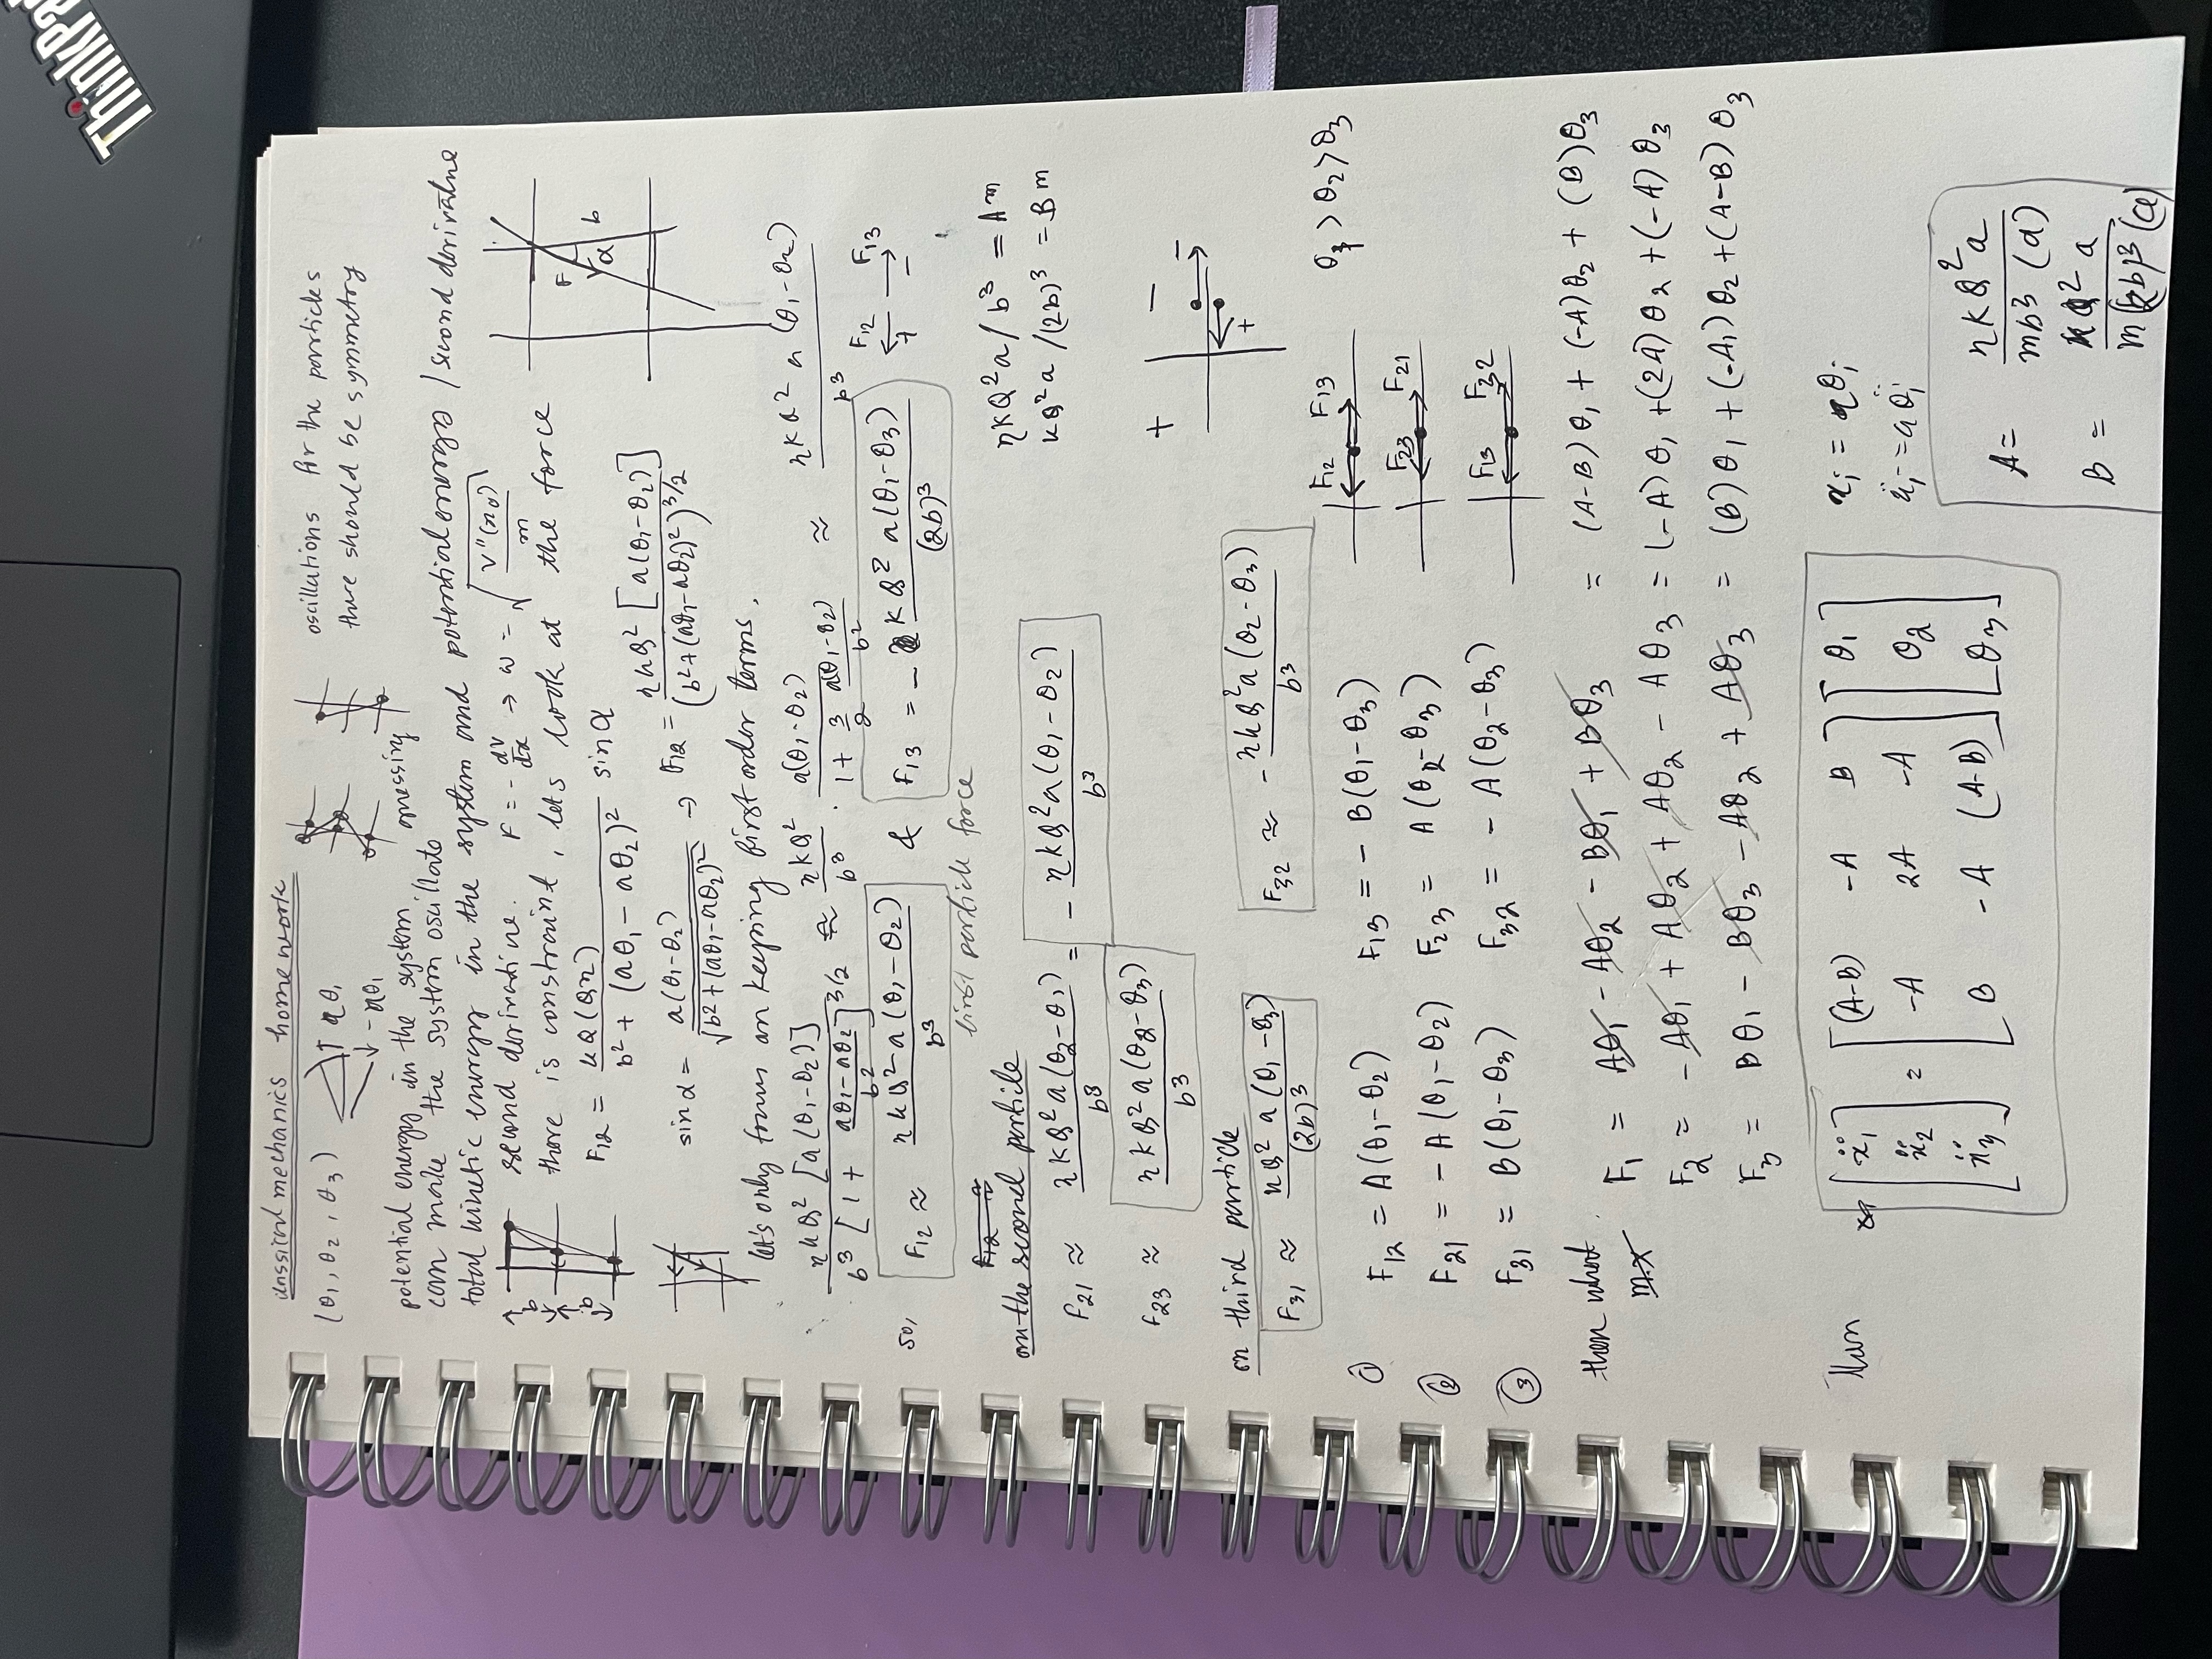 ThinkPad
classical mechanics homework
(θ₁, θ₂, θ₃) aθ₁ oscillations for the particles
-aθ₁ there should be symmetry
potential energy in the system guessing
can make the system oscillate
total kinetic energy in the system and potential energy / second derivative
second derivative. F = - dV/dx → ω = √(V''(x₀)/m)
b there is constraint, lets look at the force
b F₁₂ = kQ(Qη) / (b² + (aθ₁ - aθ₂)²) sin α F α b
sin α = a(θ₁-θ₂) / √(b² + (aθ₁-aθ₂)²) → F₁₂ = ηkQ² [a(θ₁-θ₂)] / (b² + (aθ₁-aθ₂)²)^3/2
let's only focus on keeping first order terms.
ηkQ² [a(θ₁-θ₂)] / b³ [1 + (aθ₁-aθ₂)/b²]^3/2 ≈ ηkQ²/b³ · a(θ₁-θ₂) / (1 + 3/2 a(θ₁-θ₂)/b²) ≈ ηkQ² a (θ₁-θ₂) / b³
so, F₁₂ ≈ ηkQ² a (θ₁-θ₂) / b³ & F₁₃ = - kQ² a(θ₁-θ₃) / (2b)³ F₁₂ + F₁₃ -
first particle force
F₁₂ ≈
on the second particle ηkQ²a / b³ = Am
kQ²a / (2b)³ = Bm
F₂₁ ≈ ηkQ²a(θ₂-θ₁) / b³ = - ηkQ²a(θ₁-θ₂) / b³
F₂₃ ≈ ηkQ²a(θ₂-θ₃) / b³
+ - - +
on third particle
F₃₁ ≈ kQ² a (θ₁-θ₃) / (2b)³ F₃₂ ≈ - ηkQ²a (θ₂-θ₃) / b³
① F₁₂ = A(θ₁-θ₂) F₁₃ = - B(θ₁-θ₃) F₁₂ F₁₃ θ₁ > θ₂ > θ₃
② F₂₁ = - A(θ₁-θ₂) F₂₃ = A(θ₂-θ₃) F₂₃ F₂₁
③ F₃₁ = B(θ₁-θ₃) F₃₂ = - A(θ₂-θ₃) F₁₃ F₃₂
then what F₁ = Aθ₁ - Aθ₂ - Bθ₁ + Bθ₃ = (A-B)θ₁ + (-A)θ₂ + (B)θ₃
m.x
F₂ = - Aθ₁ + Aθ₂ + Aθ₂ - Aθ₃ = (-A)θ₁ + (2A)θ₂ + (-A)θ₃
F₃ = Bθ₁ - Bθ₃ - Aθ₂ + Aθ₃ = (B)θ₁ + (-A₁)θ₂ + (A-B)θ₃
then [ẍ₁] = [(A-B) -A B] [θ₁] xᵢ = aθᵢ
[ẍ₂] [-A 2A -A] [θ₂] ẍᵢ = aθ̈ᵢ
[ẍ₃] [B -A (A-B)] [θ₃]
A = ηkQ²a / mb³ (a)
B = kQ² a / m(2b)³ (a)